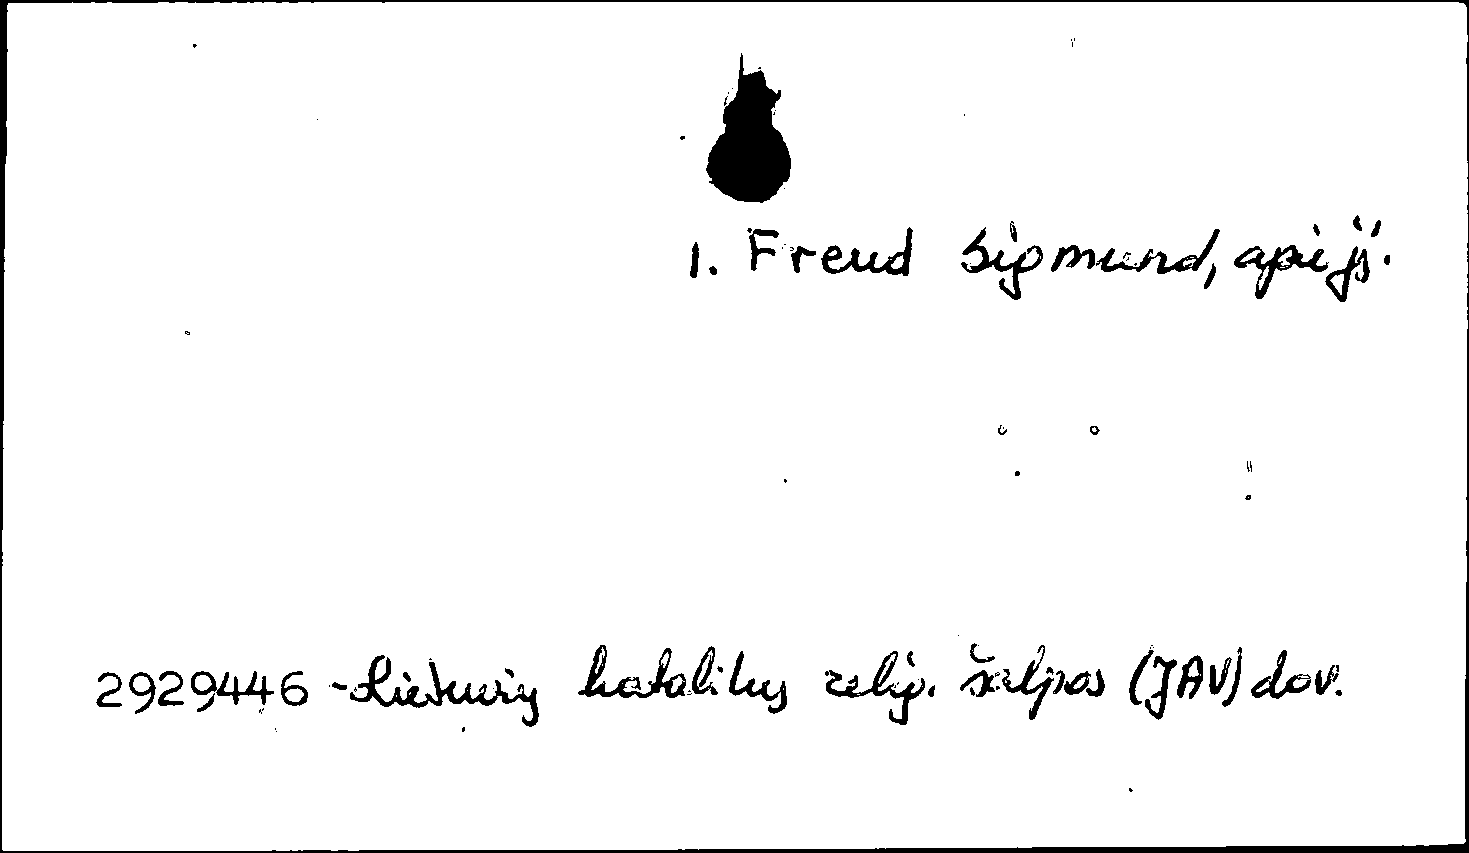 1. Freud Sigmund, apie jį.
2929446 - Lietuvių katalikų relig. šalpos (JAV) dov.